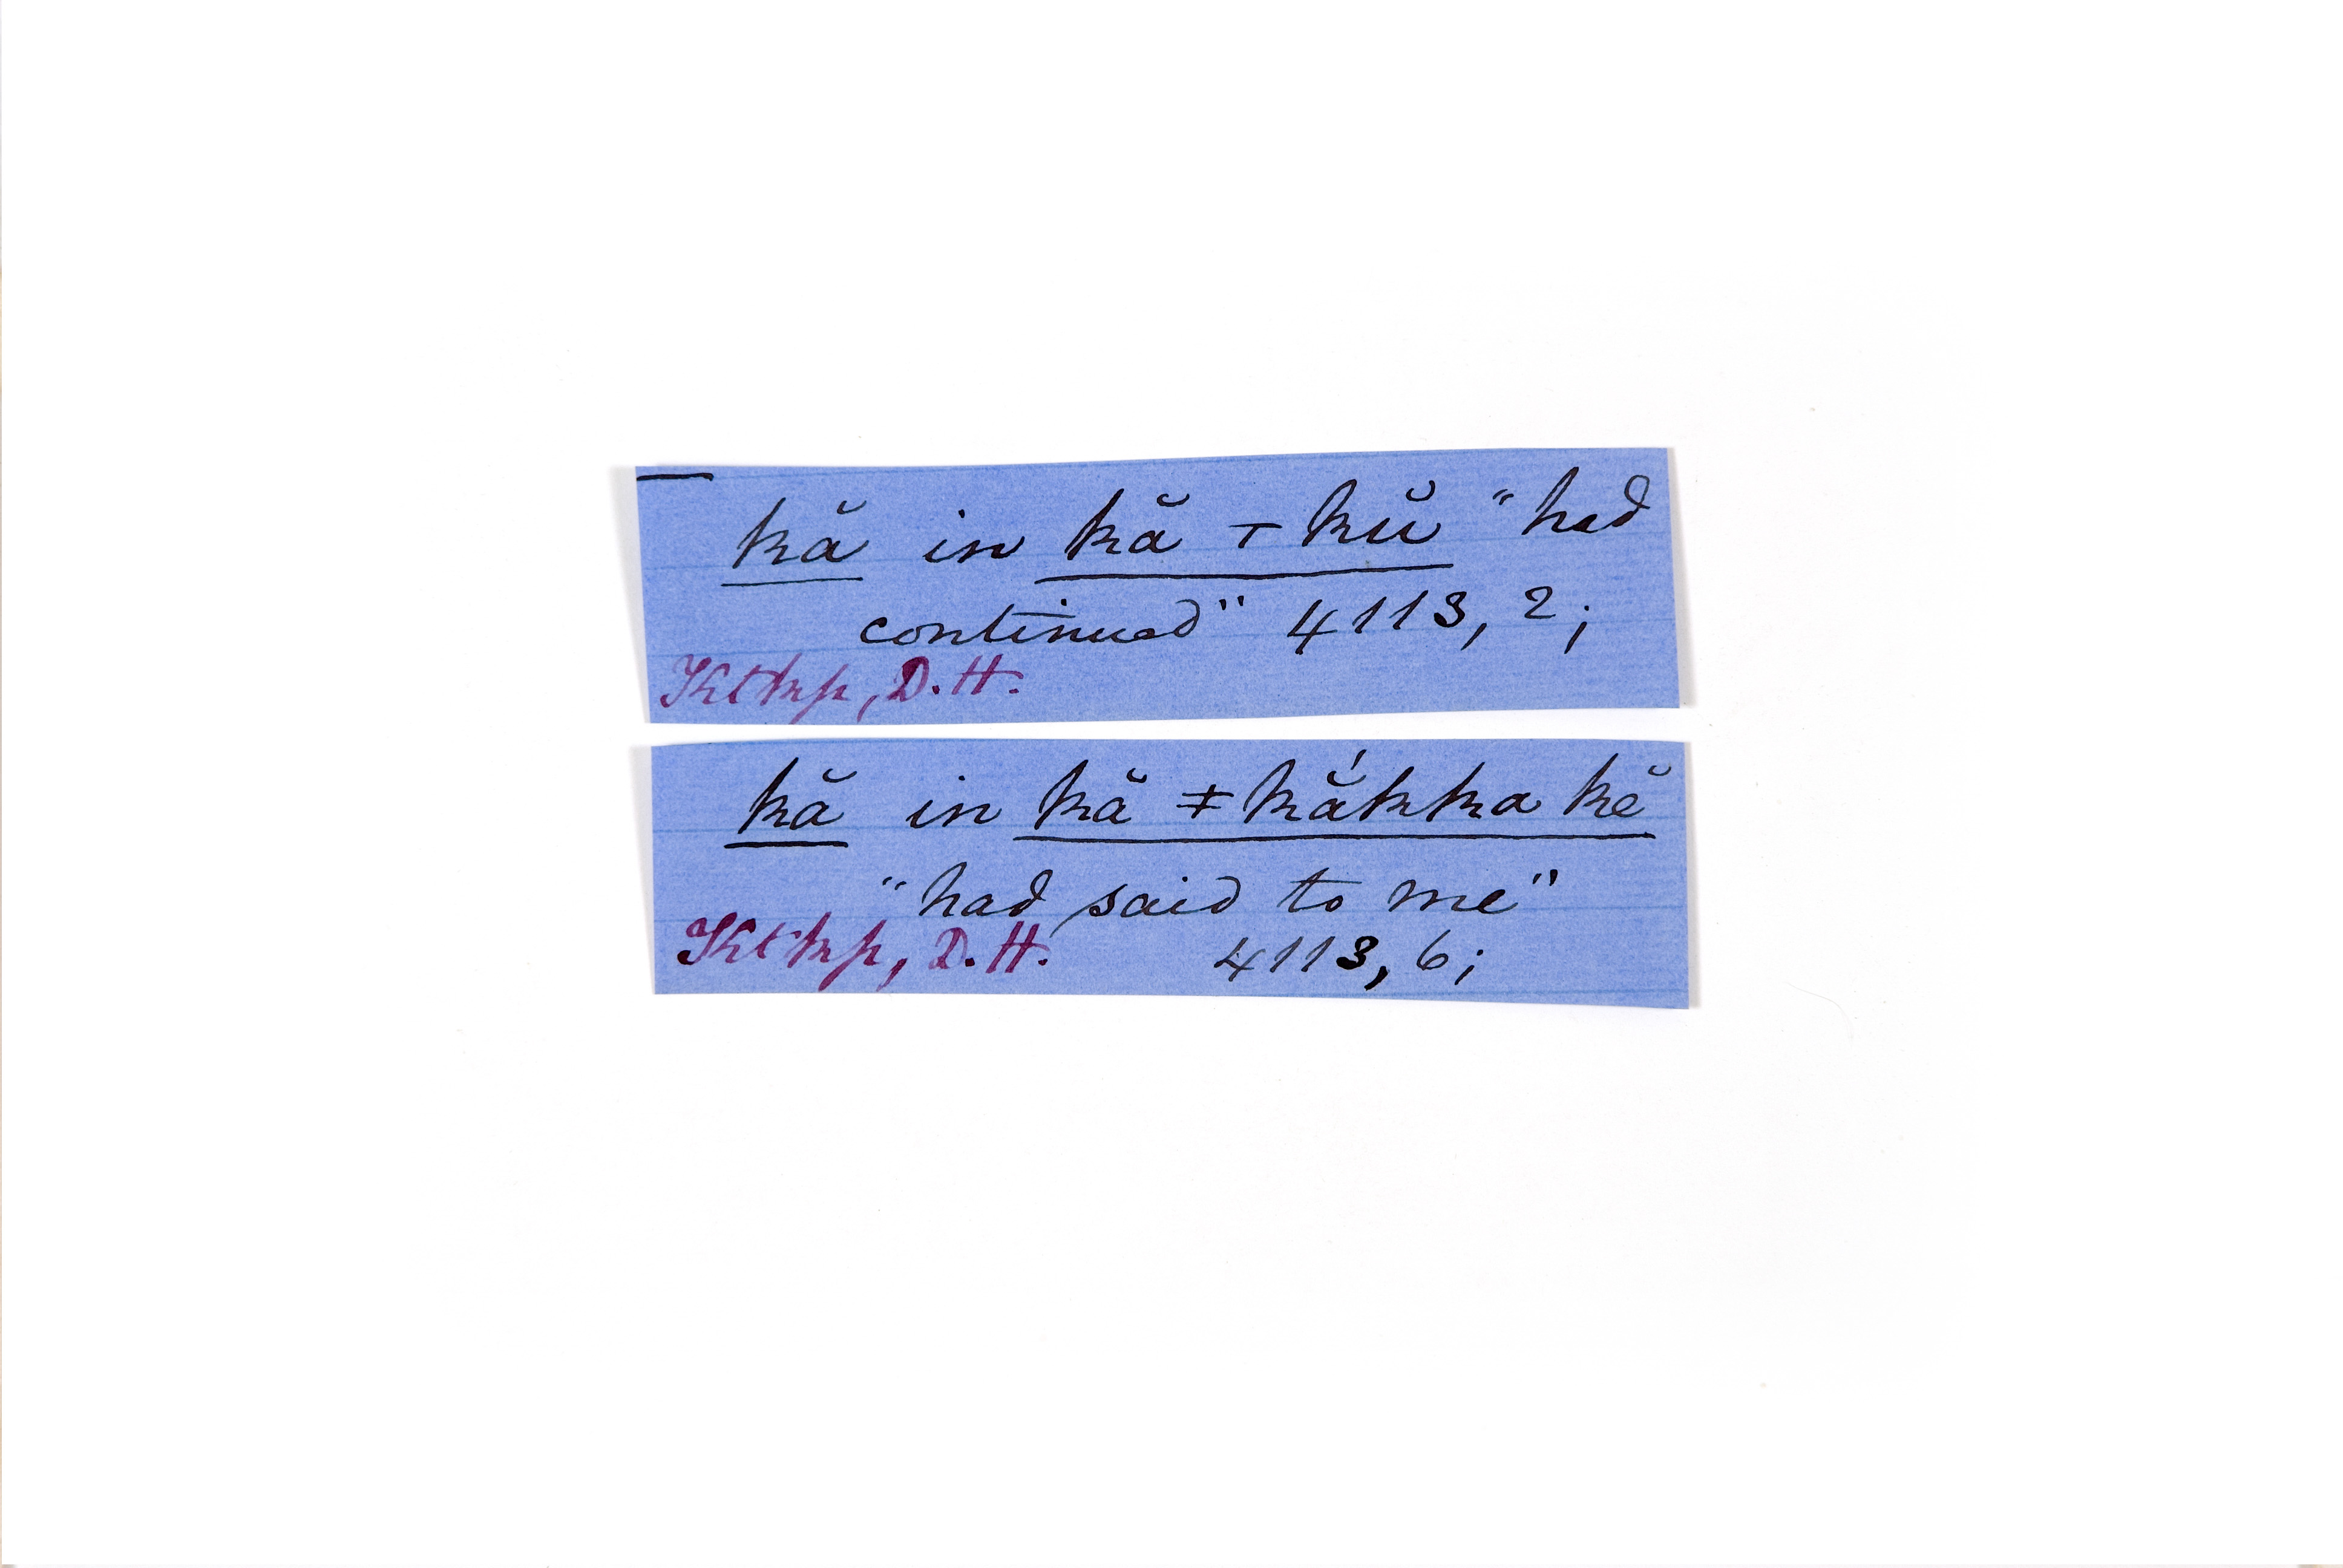 kă in kă ⊤ kŭ "had
continued" 4113, 2;
Ktkkp, D.H.
kă in kă ǂ kắkka kĕ
"had said to me"
Ktkkp, D.H. 4113, 6;